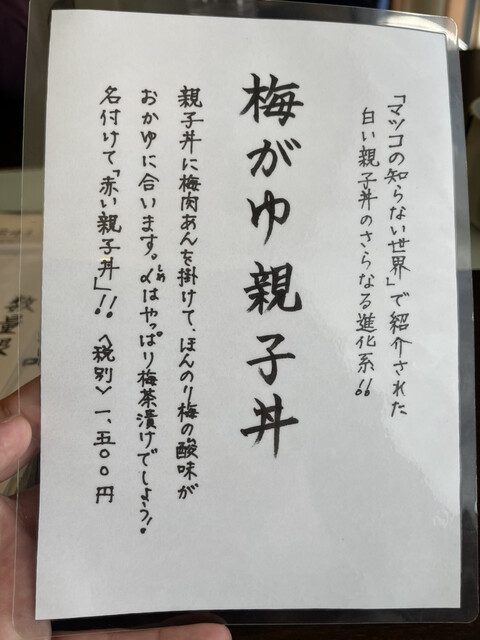 「マツコの知らない世界」で紹介された
白い親子丼のさらなる進化系!!
梅がゆ親子丼
親子丼に梅肉あんを掛けて、ほんのり梅の酸味が
おかゆに合います。〆はやっぱり梅茶漬けでしょう!
しめ
名付けて「赤い親子丼」!! <税別> 一、五〇〇円